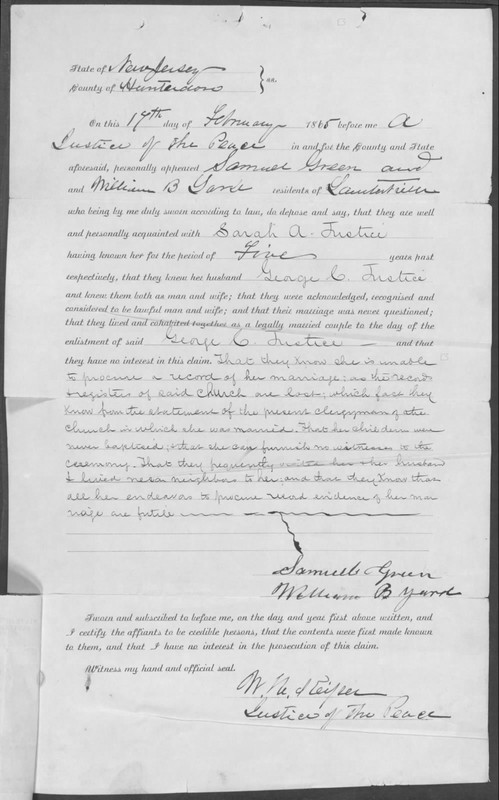 State of New Jersey
County of Hunterdon } ss.
On this 14th day of February 1865 before me A
Justice of the Peace in and for the County and State
aforesaid, personally appeared Samuel Green and
and William B Yard residents of Lambertville
who being by me duly sworn according to law, do depose and say, that they are well
and personally acquainted with Sarah A. Justice
having known her for the period of Five years past
respectively, that they knew her husband George C. Justice
and knew them both as man and wife; that they were acknowledged, recognised and
considered to be lawful man and wife; and that their marriage was never questioned;
that they lived and cohabited together as a legally married couple to the day of the
enlistment of said George C. Justice — and that
they have no interest in this claim. That they know she is unable
to procure a record of her marriage; as the records
& registers of said church are lost; which fact they
know from the statement of the present clergyman of the
church in which she was married. That her children were
never baptised; & that she can furnish no witnesses to the
ceremony. That they frequently visited her & her husband
& lived near neighbors to her; and that they know that
all her endeavors to procure record evidence of her mar
riage are futile
Samuel Green
William B Yard
Sworn and subscribed to before me, on the day and year first above written, and
I certify the affiants to be credible persons, that the contents were first made known
to them, and that I have no interest in the prosecution of this claim.
Witness my hand and official seal.
W. H.
Justice of the Peace